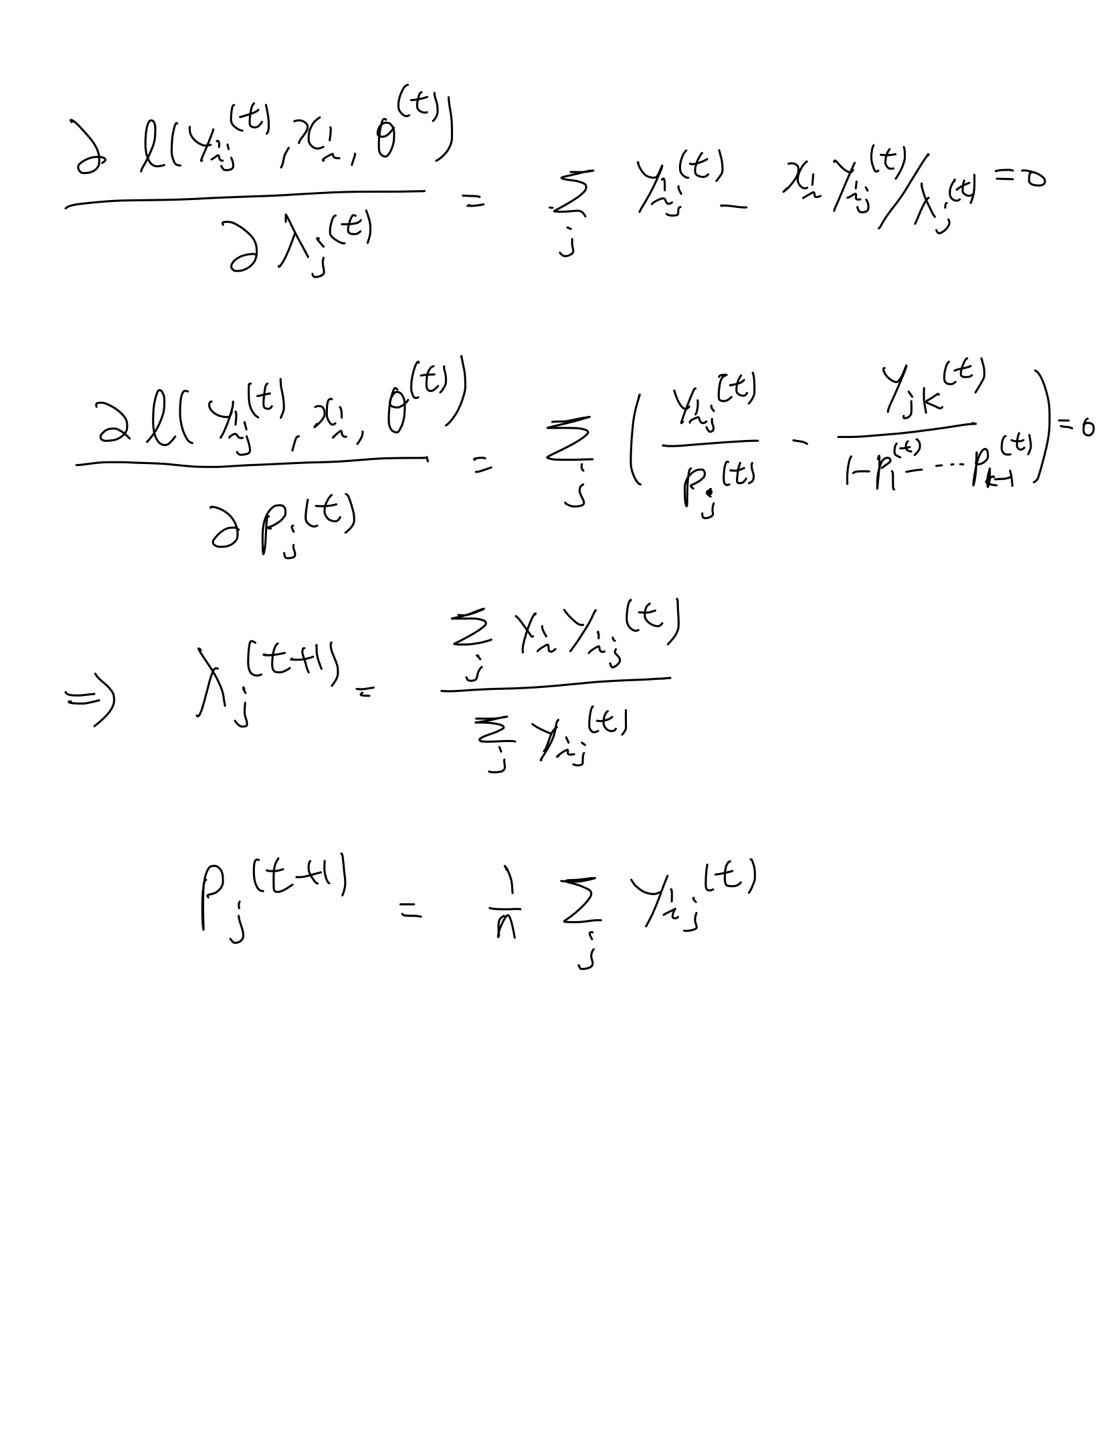 ∂ l(y_ij^(t), x_i, θ^(t)) / ∂ λ_j^(t) = Σ_j y_ij^(t) − x_i y_ij^(t) / λ_j^(t) = 0
∂ l(y_ij^(t), x_i, θ^(t)) / ∂ p_j^(t) = Σ_j ( y_ij^(t) / p_j^(t) − y_jk^(t) / (1−p_1^(t) − ⋯ p_k−1^(t)) ) = 0
⇒ λ_j^(t+1) = Σ_j x_i y_ij^(t) / Σ_j y_ij^(t)
p_j^(t+1) = 1/n Σ_j y_ij^(t)